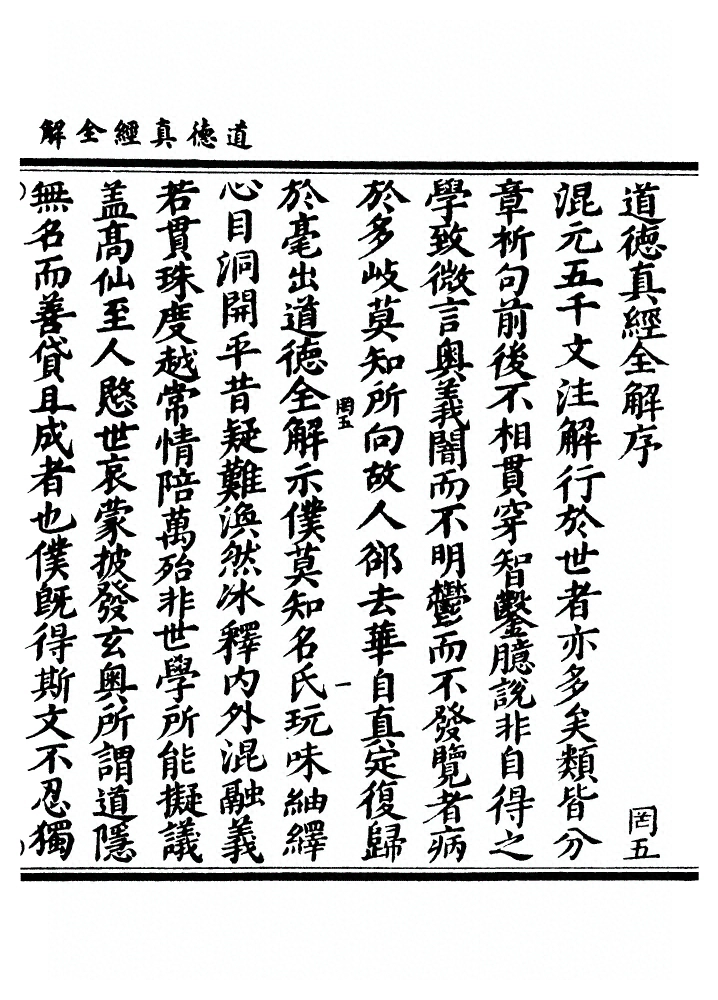 道德真經全解
道德真經全解序 罔五
混元五千文注解行於世者亦多矣類皆分
章析句前後不相貫穿智鑿臆說非自得之
學致微言奧義闇而不明鬱而不發覽者病
於多岐莫知所向故人郤去華自真定復歸
罔五 一
於亳出道德全解示僕莫知名氏玩味紬繹
心目洞開平昔疑難渙然冰釋內外混融義
若貫珠度越常情陪萬殆非世學所能擬議
盖高仙至人愍世哀蒙披發玄奧所謂道隱
無名而善貸且成者也僕既得斯文不忍獨